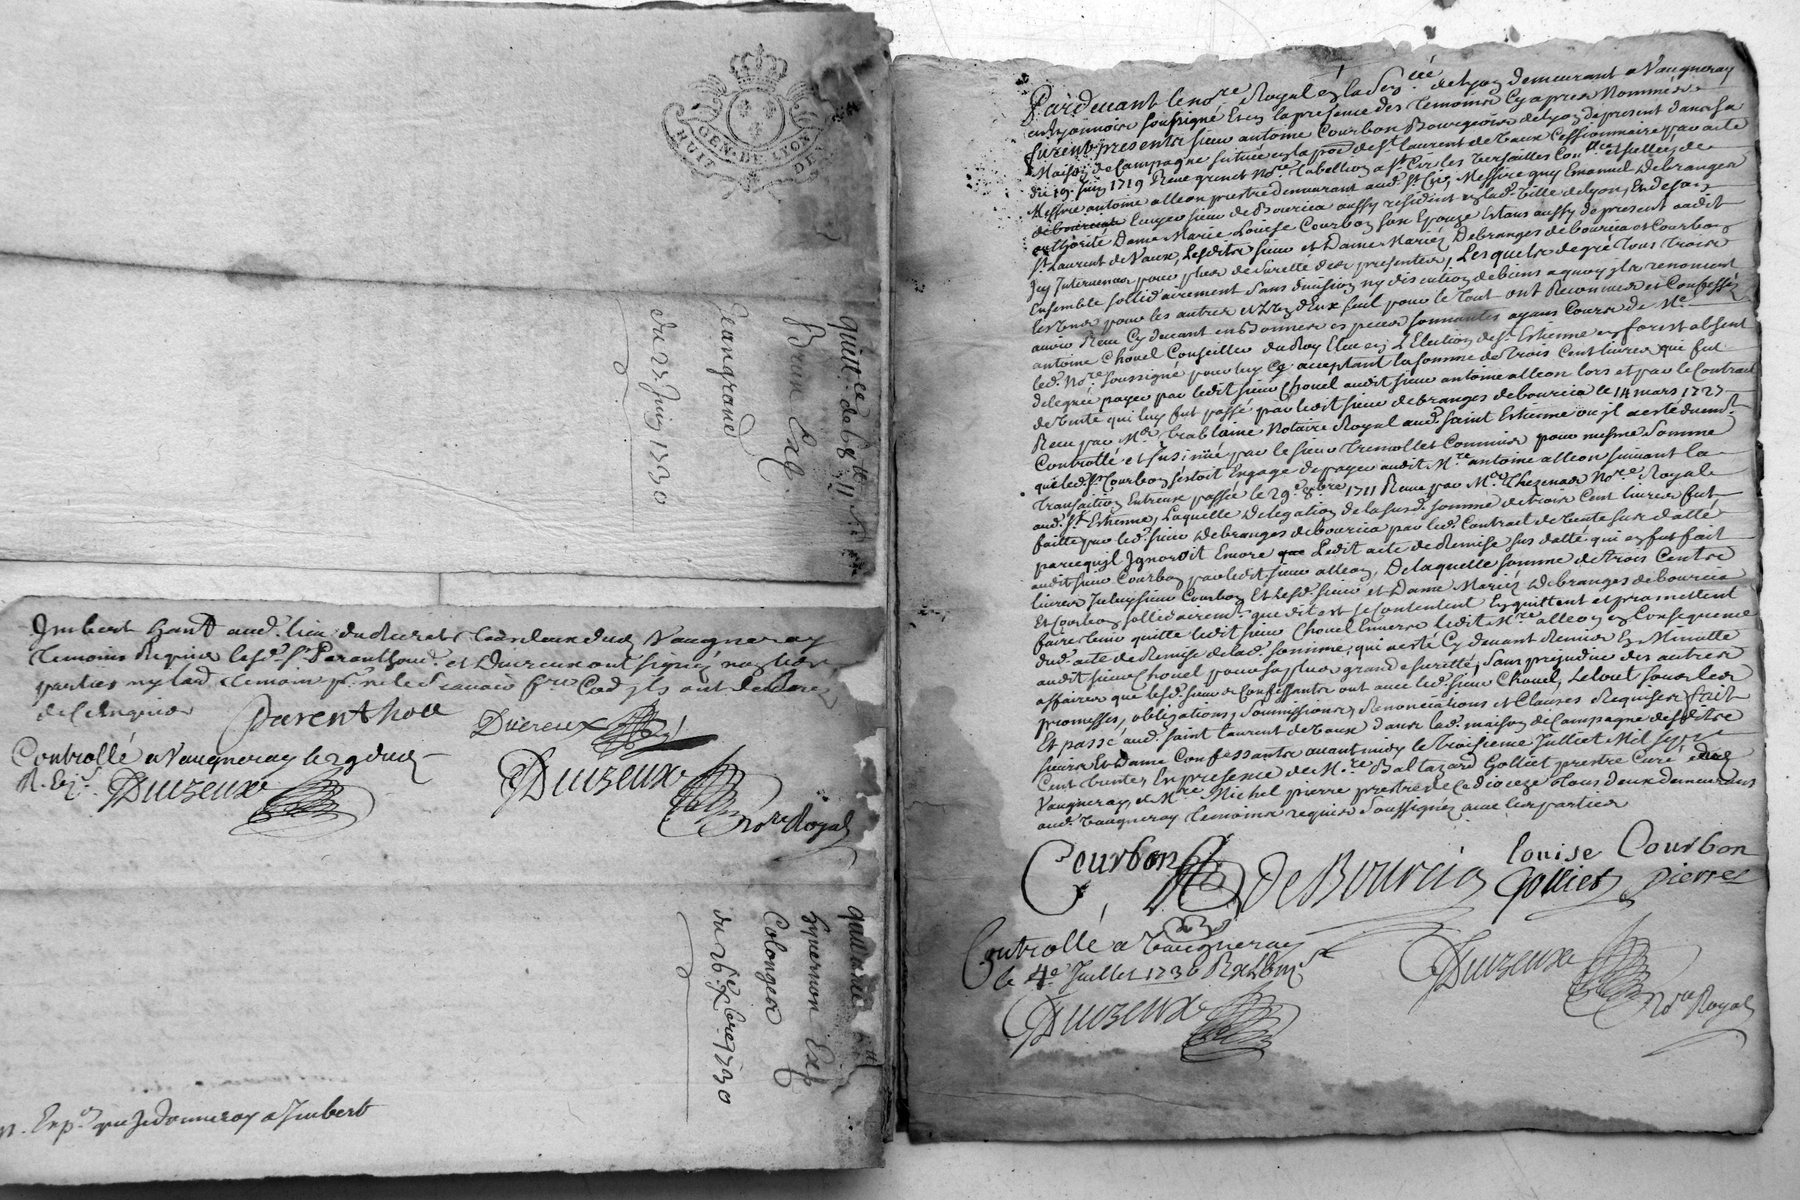 GEN. DE LYON
HUIT DEN
quitt.ce de 68tt 11 s.
Brun Exp.
Jeangrand
du 25 Juin 1730
Imbert aud. lieu du Vaugneray
temoins Requis led. Sr. Parenthou et Ducreux ont signé non les
parties ny lad. temoin pr. ne le Scavoir
de ce Enquis
Parenthou
Ducreux
Controllé a Vaugneray le 29 dud.
Duizeux
Duizeux
No.re Royal
quittance
Exp
Colonges
du 26e Xbre 1730
Exp.on que Je donneray a Imbert
Pardevant le no.re Royal en la Sen.cée de Lyon demeurant a Vaugneray
en Lyonnois soussigné Et en la presence des temoins Cy apres Nommés
furent presents sieur antoine Courbon Bourgeois de Lyon de present dans sa
Maison de Campagne situeé en la par. de St. laurent de Vaux Cessionnaire par acte
du 19. Juin 1719 Receu grinet No.re Tabellion a St. Cir les Versailles
Messire antoine alleon prestre demeurant aud. St. Cir, Messire guy Emanuel Debranges
debourcia Ecuyer sieur de Bourcia aussy resident en lad. Ville de Lyon, Et de sa
authorité Dame Marie Louise Courbon son Epouze Estans aussy de present audit
St. Laurent de Vaux, Lesdits sieur et Dame Mariés Debranges debourcia et Courbon
Icy Intervenans pour plus de Seuretté des presentes, Lesquels de gré Tous Trois
Ensemble sollidairement sans division ny discution de biens a quoy ils renoncent
les uns pour les autres et L'un d'Eux seul pour le Tout ont Reconnu et Confessés
avoir Receu Cy devant en bonnes especes sonnantes ayans Cours de Me.
antoine Chovel Conseiller du Roy Eleu en L'Election de St. Estienne en forest absent
led. No.re soussigné pour luy acceptant la somme de Trois Cent livres qui fut
deleguée payer par ledit sieur Chovel audit sieur antoine alleon lors et par le Contrat
de Vente qui luy fut passé par ledit sieur debranges debourcia le 14 mars 1727
Receu par Me. Trablaine Notaire Royal aud. saint Estienne ou il a esté duem.t
Controllé et Insinüé par le sieur Tremollet Commis pour mesme Somme
que led. Sr. Courbon s'estoit Engagé de payer audit M.re antoine alleon suivant la
Transaction Entreux passée le 29e. 8bre 1711 Receue par Me. Thezenas No.re Royal
aud. St. Estienne, Laquelle Delegation de la susd. somme de trois Cent livres fut
faitte par led. sieur debranges debourcia par led. Contrat de Vente sus datté
parcequ'il Ignoroit Encore que Ledit acte de Remise sus datté qui en fut fait
audit sieur Courbon par ledit sieur alleon, De laquelle somme de trois Cents
livres Iceluy sieur Courbon Et lesd. sieur et Dame Mariés Debranges debourcia
Et Courbon sollidairem.t que dit est se Contentent En quittent et promettent
faire tenir quitte ledit sieur Chovel Envers ledit M.re alleon en Consequence
dud. acte de Remise de lad. somme, qui a esté Cy devant Remise En Minutte
audit sieur Chovel pour sa plus grande seuretté, sans prejudice des autres
affaires que lesd. sieurs Confessants ont avec led. sieur Chovel, Le tout sous les
promesses, obligations, soumissions, Renonciations et Clauses Requises fait
Et passé aud. saint Laurent de Vaux dans lad. maison de Campagne desdits
sieurs Et Dame Confessants avant midy le Troisieme Juillet Mil sept
Cent trente, En presence de M.re Baltazard Golliet prestre Curé dud.
Vaugneray, et M.re Michel pierre prestre de Ce dioceze Tous deux demeurans
aud. Vaugneray temoins requis soussignés avec les parties
Courbon
de Bourcia
louise Courbon
Golliet
pierre
Controllé a Vaugneray
le 4e. Juillet 1730
Duizeux
Duizeux
No.re Royal